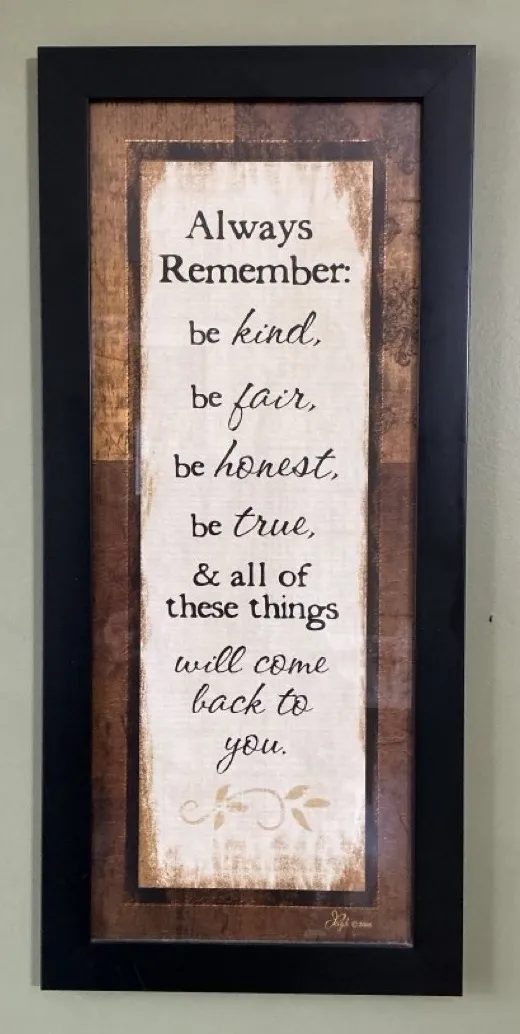 Always
Remember:
be kind,
be fair,
be honest,
be true,
& all of
these things
will come
back to
you.